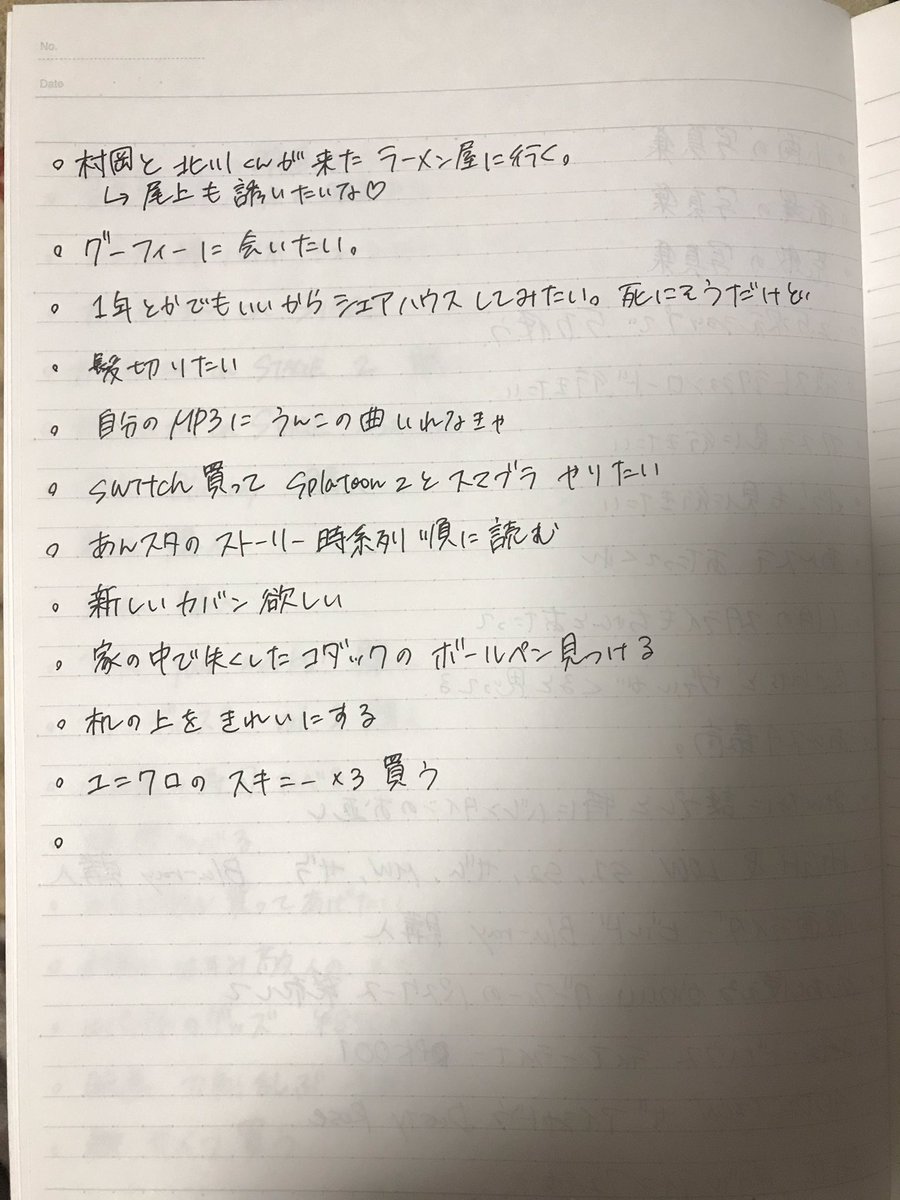 No.
Date
○ 村岡と北川くんが来たラーメン屋に行く。
↳ 尾上も誘いたいな♡
○ グーフィーに会いたい。
○ 1年とかでもいいからシェアハウスしてみたい。死にそうだけど
○ 髪切りたい
○ 自分のMP3にうんこの曲いれなきゃ
○ switch買ってSplatoon2とスマブラやりたい
○ あんスタのストーリー時系列順に読む
○ 新しいカバン欲しい
○ 家の中で失くしたコダックのボールペン見つける
○ 机の上をきれいにする
○ ユニクロのスキニー×3買う
○